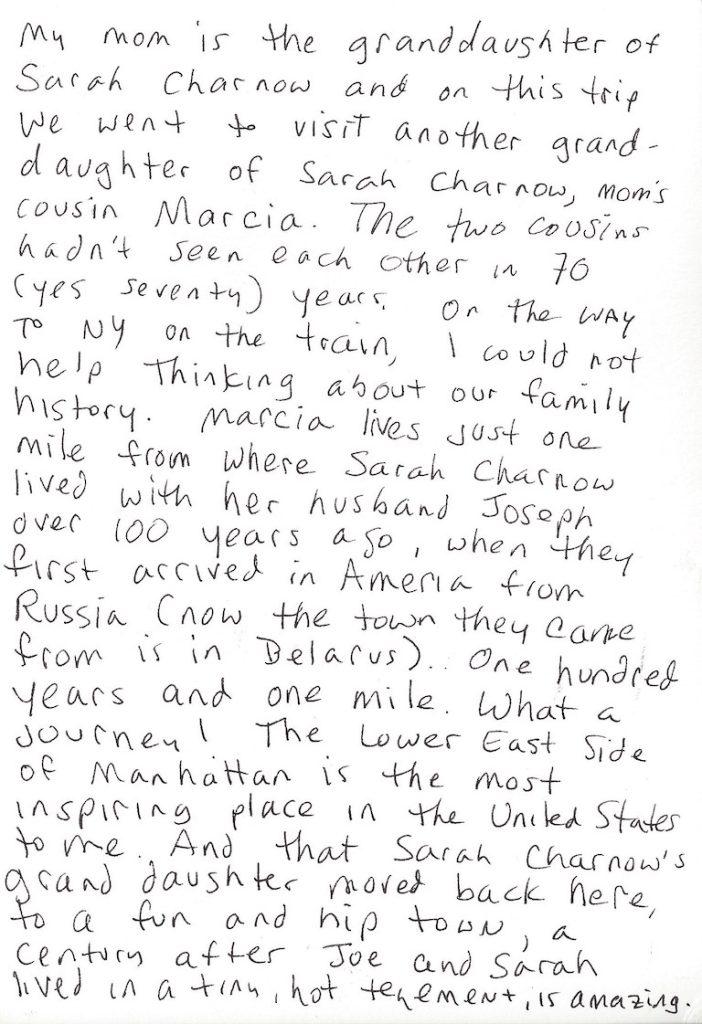 My mom is the granddaughter of
Sarah Charnow and on this trip
we went to visit another grand-
daughter of Sarah Charnow, mom's
cousin Marcia. The two cousins
hadn't seen each other in 70
(yes seventy) years. On the way
to NY on the train, I could not
help thinking about our family
history. Marcia lives just one
mile from where Sarah Charnow
lived with her husband Joseph
over 100 years ago, when they
first arrived in Ameria from
Russia (now the town they came
from is in Belarus). One hundred
years and one mile. What a
journey! The Lower East Side
of Manhattan is the most
inspiring place in the United States
to me. And that Sarah Charnow's
grand daughter moved back here,
to a fun and hip town, a
century after Joe and Sarah
lived in a tiny, hot tenement, is amazing.